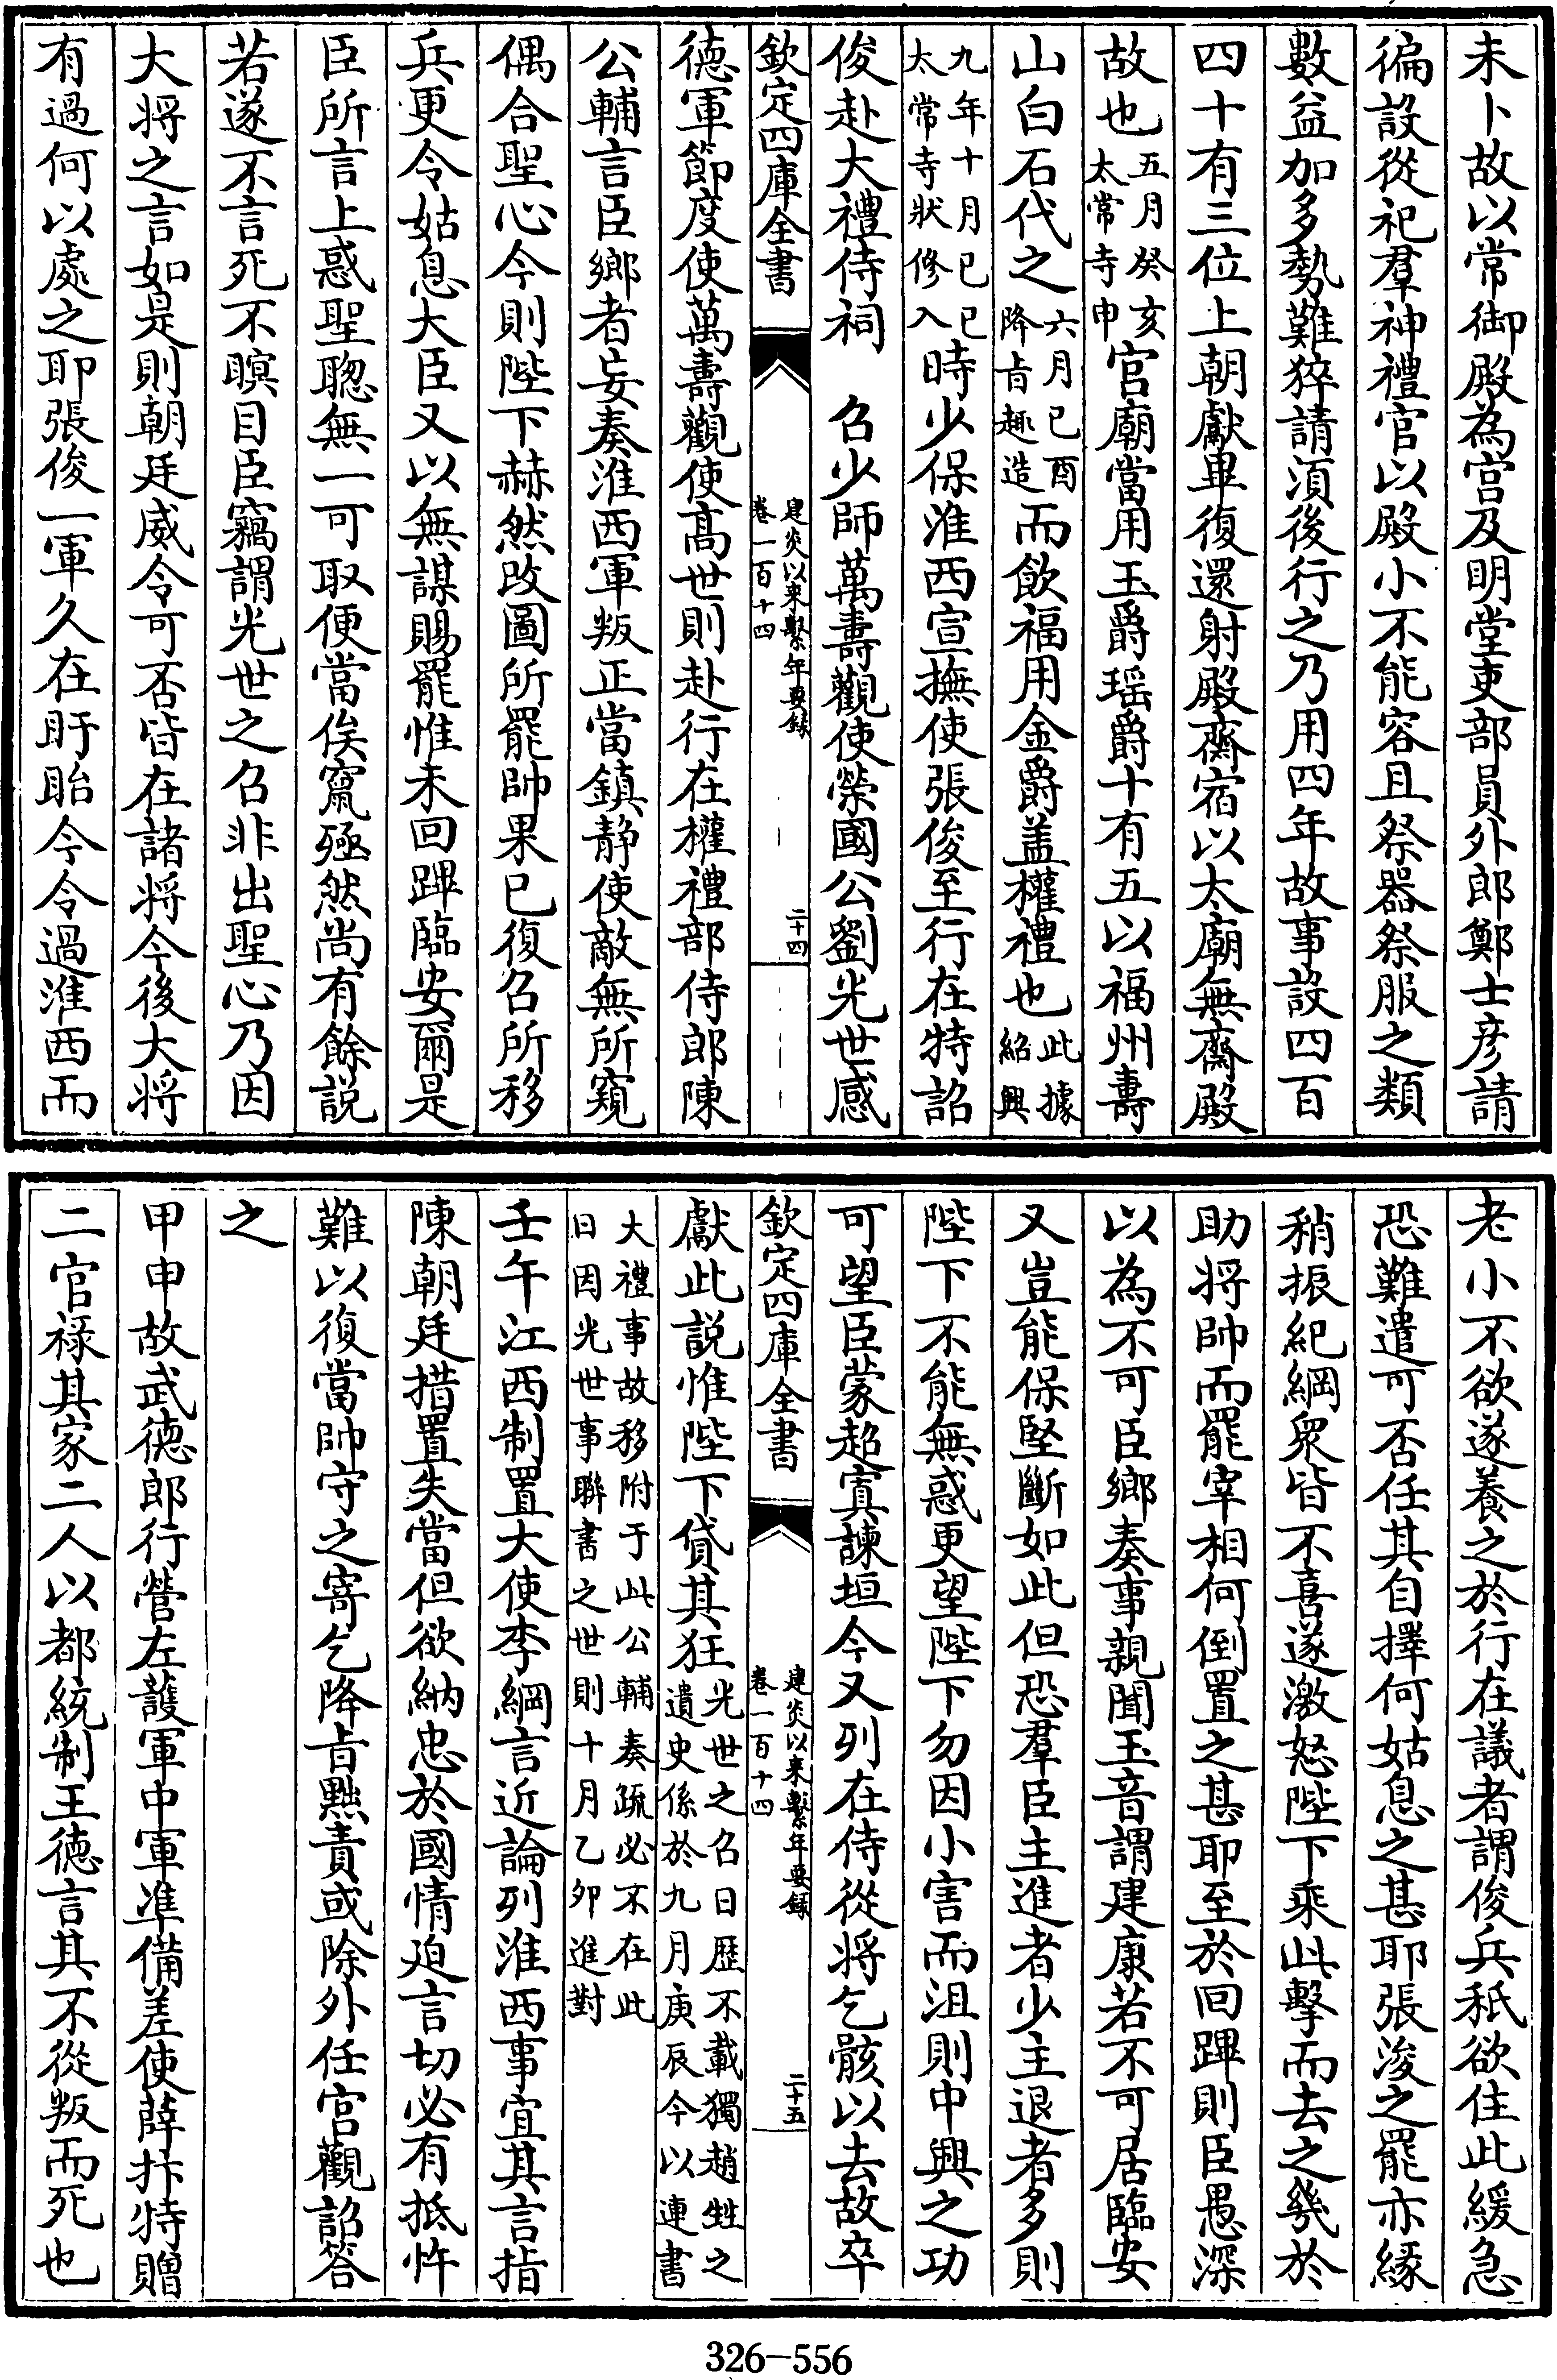 未卜故以常御殿為宫及明堂吏部員外郎鄭士彦請
徧設從祀羣神禮官以殿小不能容且祭器祭服之類
數益加多勢難猝請湏後行之乃用四年故事設四百
四十有三位上朝獻畢復還射殿齋宿以太廟無齋殿
故也五月癸亥太常寺申官廟當用玉爵瑶爵十有五以福州壽
山白石代之六月己酉降㫖趣造而飲福用金爵盖權禮也此據紹興
九年十月己巳太常寺狀修入時少保淮西宣撫使張俊至行在特詔
俊赴大禮侍祠　召少師萬壽觀使榮國公劉光世感
欽定四庫全書
建炎以來繫年要録
卷一百十四
二十四
德軍節度使萬壽觀使髙世則赴行在權禮部侍郎陳
公輔言臣鄉者妄奏淮西軍叛正當鎮靜使敵無所窺
偶合聖心今則陛下赫然改圖所罷帥果已復召所移
兵更令姑息大臣又以無謀賜罷惟未回蹕臨安爾是
臣所言上惑聖聰無一可取便當俟竄殛然尚有餘説
若遂不言死不瞑目臣竊謂光世之召非出聖心乃因
大將之言如是則朝廷威令可否皆在諸將今後大將
有過何以處之耶張俊一軍久在盱眙今令過淮西而
老小不欲遂養之於行在議者謂俊兵秖欲住此緩急
恐難遣可否任其自擇何姑息之甚耶張浚之罷亦緣
稍振紀綱衆皆不喜遂激怒陛下乘此擊而去之幾於
助將帥而罷宰相何倒置之甚耶至於回蹕則臣愚深
以為不可臣鄉奏事親聞玉音謂建康若不可居臨安
又豈能保堅斷如此但恐羣臣主進者少主退者多則
陛下不能無惑更望陛下勿因小害而沮則中興之功
可望臣蒙超寘諫垣今又列在侍從將乞骸以去故卒
欽定四庫全書
建炎以來繫年要録
卷一百十四
二十五
獻此説惟陛下貸其狂光世之召日歴不載獨趙甡之遺史係於九月庚辰今以連書
大禮事故移附于此公輔奏疏必不在此日因光世事聯書之世則十月乙卯進對
壬午江西制置大使李綱言近論列淮西事宜其言指
陳朝廷措置失當但欲納忠於國情迫言切必有抵忤
難以復當帥守之寄乞降㫖黜責或除外任宫觀詔答
之
甲申故武徳郎行營左䕶軍中軍準備差使薛抃特贈
二官祿其家二人以都統制王徳言其不從叛而死也
326–556